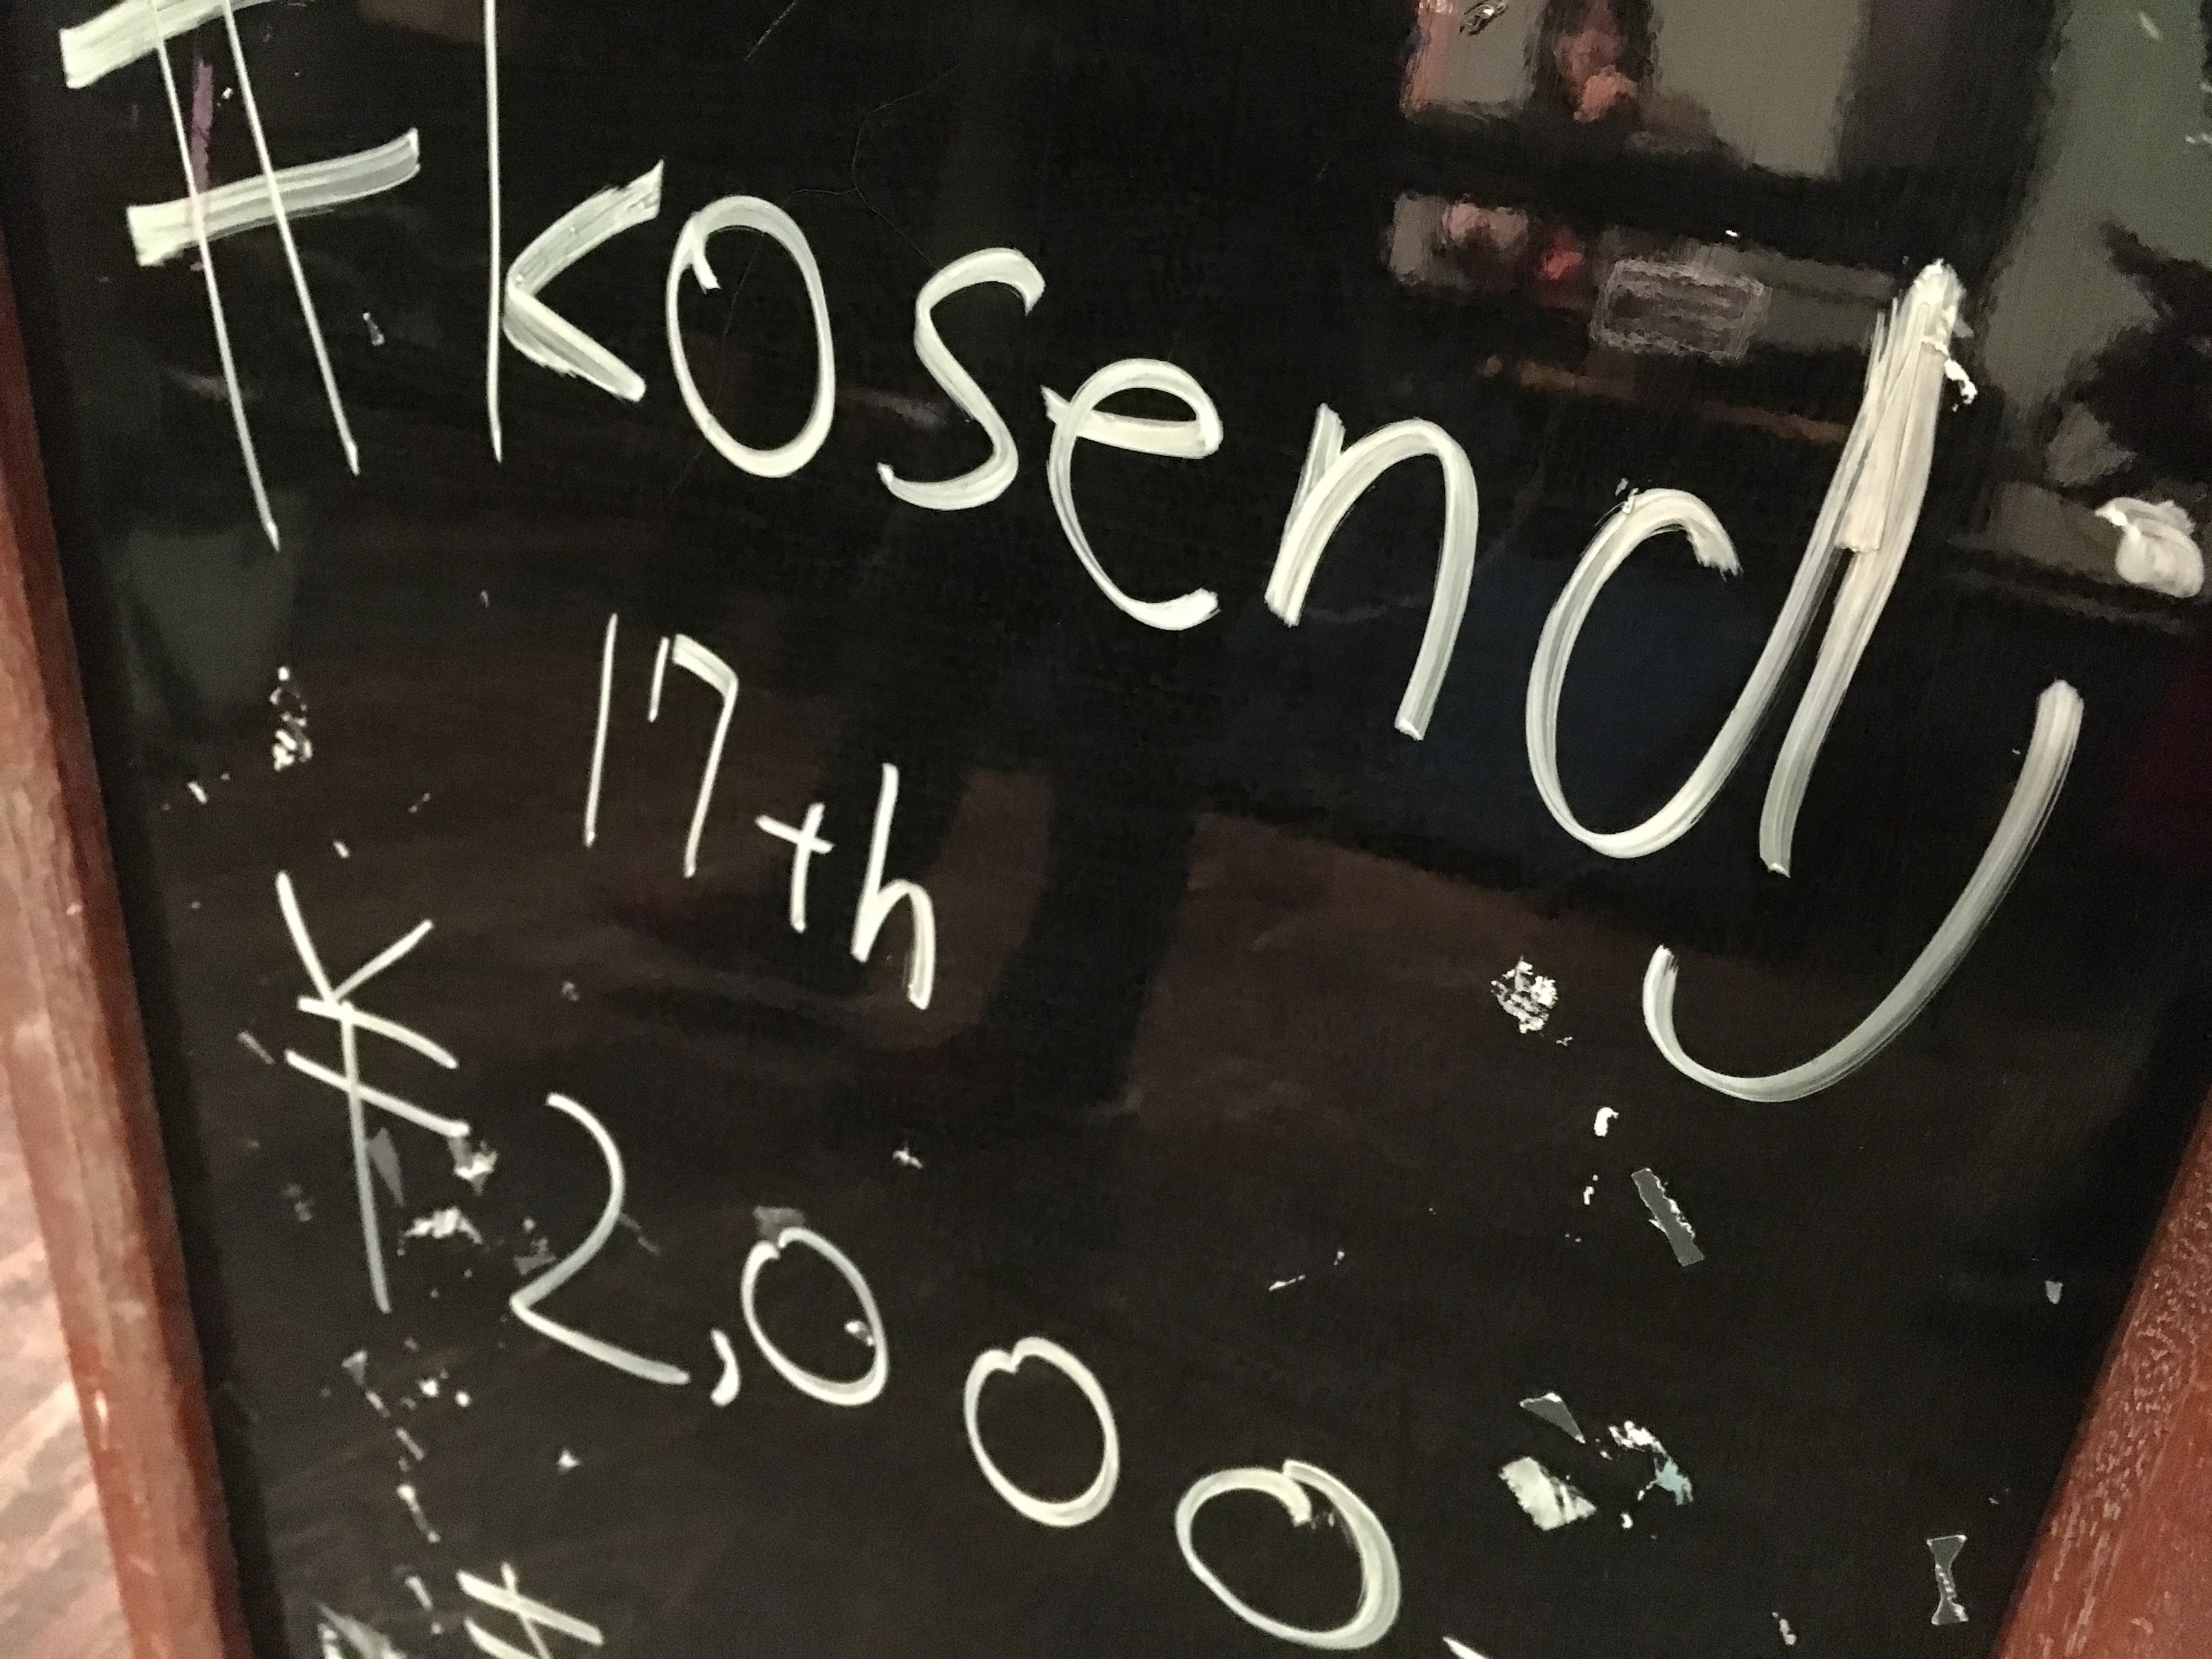 #kosendj
17th
¥2,000